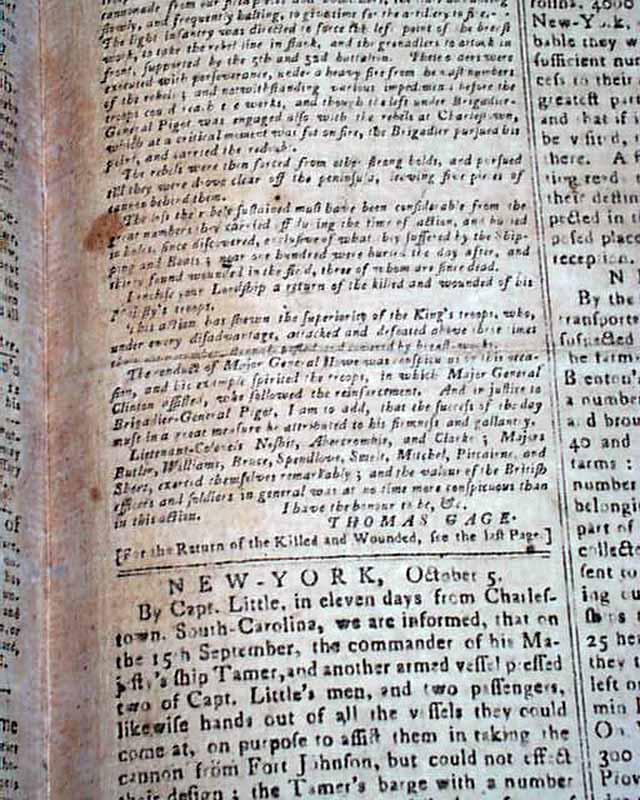 slowly, and frequently halting, to give time for the artillery to fire.
The light infantry was directed to force the left point of the breast
work, to take the rebel line in flank, and the grenadiers to attack in
front, supported by the 5th and 52d battalion. These orders were
executed with perseverance, under a heavy fire from the vast numbers
of the rebels; and notwithstanding various impediments before the
troops could reach the works, and though the left under Brigadier-
General Pigot was engaged also with the rebels at Charlestown,
which at a critical moment was set on fire, the Brigadier pursued his
point, and carried the redoubt.
The rebels were then forced from other strong holds, and pursued
till they were drove clear off the peninsula, leaving five pieces of
cannon behind them.
The loss the rebels sustained must have been considerable from the
great numbers they carried off during the time of action, and buried
in holes, since discovered, exclusive of what they suffered by the Ship-
ping and Boats; near one hundred were buried the day after, and
thirty found wounded in the field, three of whom are since dead.
I enclose your Lordship a return of the killed and wounded of his
Majesty's troops.
This action has shewn the superiority of the King's troops, who,
under every disadvantage, attacked and defeated above three times
their own number, strongly posted and covered by breast-works.
The conduct of Major General Howe was conspicuous on this occa-
sion, and his example spirited the troops, in which Major General
Clinton assisted, who followed the reinforcement. And in justice to
Brigadier-General Pigot, I am to add, that the success of the day
must in a great measure be attributed to his firmness and gallantry.
Lieutenant-Colonels Nesbit, Abercrombie, and Clarke; Majors
Butler, Williams, Bruce, Spendlove, Smelt, Mitchel, Pitcairne, and
Short, exerted themselves remarkably; and the valour of the British
officers and soldiers in general was at no time more conspicuous than
in this action. I have the honour to be, &c.
THOMAS GAGE.
[For the Return of the Killed and Wounded, see the last Page.]
NEW-YORK, October 5.
By Capt. Little, in eleven days from Charles-
town, South-Carolina, we are informed, that on
the 15th September, the commander of his Ma-
jesty's ship Tamer, and another armed vessel pressed
two of Capt. Little's men, and two passengers,
likewise hands out of all the vessels they could
come at, on purpose to assist them in taking the
cannon from Fort Johnson, but could not effect
their design; the Tamer's barge with a number
New-York,
bable they w
sufficient nu
cess to their
greatest pa
and that if i
be visited,
there. A f
their destin
pected in t
posed place
reception.
N
By the
transports
suspected
the farms
Brenton's
a number
and brou
40 and
tarms :
number
belongi
part of
collecte
sent to
ing ou
25 he
they
left o
min
O
300
Prov